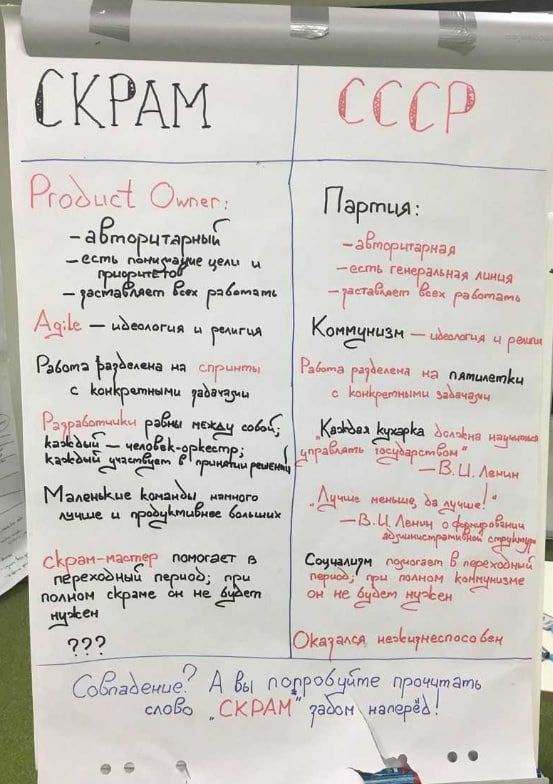 СКРАМ
Product Owner:
– авторитарный
– есть понимание цели и
приоритетов
– заставляет всех работать
Agile – идеология и религия
Работа разделена на спринты
с конкретными задачами
Разработчики равны между собой;
каждый – человек-оркестр;
каждый участвует в принятии решений
Маленькие команды намного
лучше и продуктивнее больших
скрам-мастер помогает в
переходный период; при
полном скраме он не будет
нужен
???
СССР
Партия:
– авторитарная
– есть генеральная линия
– заставляет всех работать
Коммунизм – идеология и религия
Работа разделена на пятилетки
с конкретными задачами
„Каждая кухарка должна научиться
управлять государством"
– В.И. Ленин
„Лучше меньше, да лучше!"
– В.И. Ленин о формировании
административной структуры
Социализм помогает в переходный
период; при полном коммунизме
он не будет нужен
Оказался нежизнеспособен
Совпадение? А вы попробуйте прочитать
слово „СКРАМ" задом наперёд!